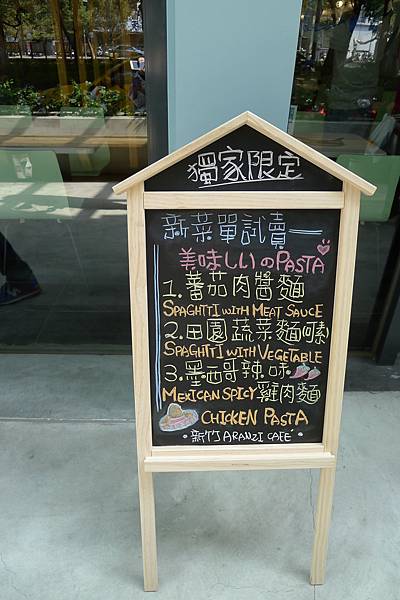 獨家限定
新菜單試賣
美味しいのPASTA
1.蕃茄肉醬麵
SPAGHTTI WITH MEAT SAUCE
2.田園蔬菜麵(素)
SPAGHTTI WITH VEGETABLE
3.墨西哥辣味
MEXICAN SPICY 雞肉麵
CHICKEN PASTA
•新竹 ARANZI CAFÉ•